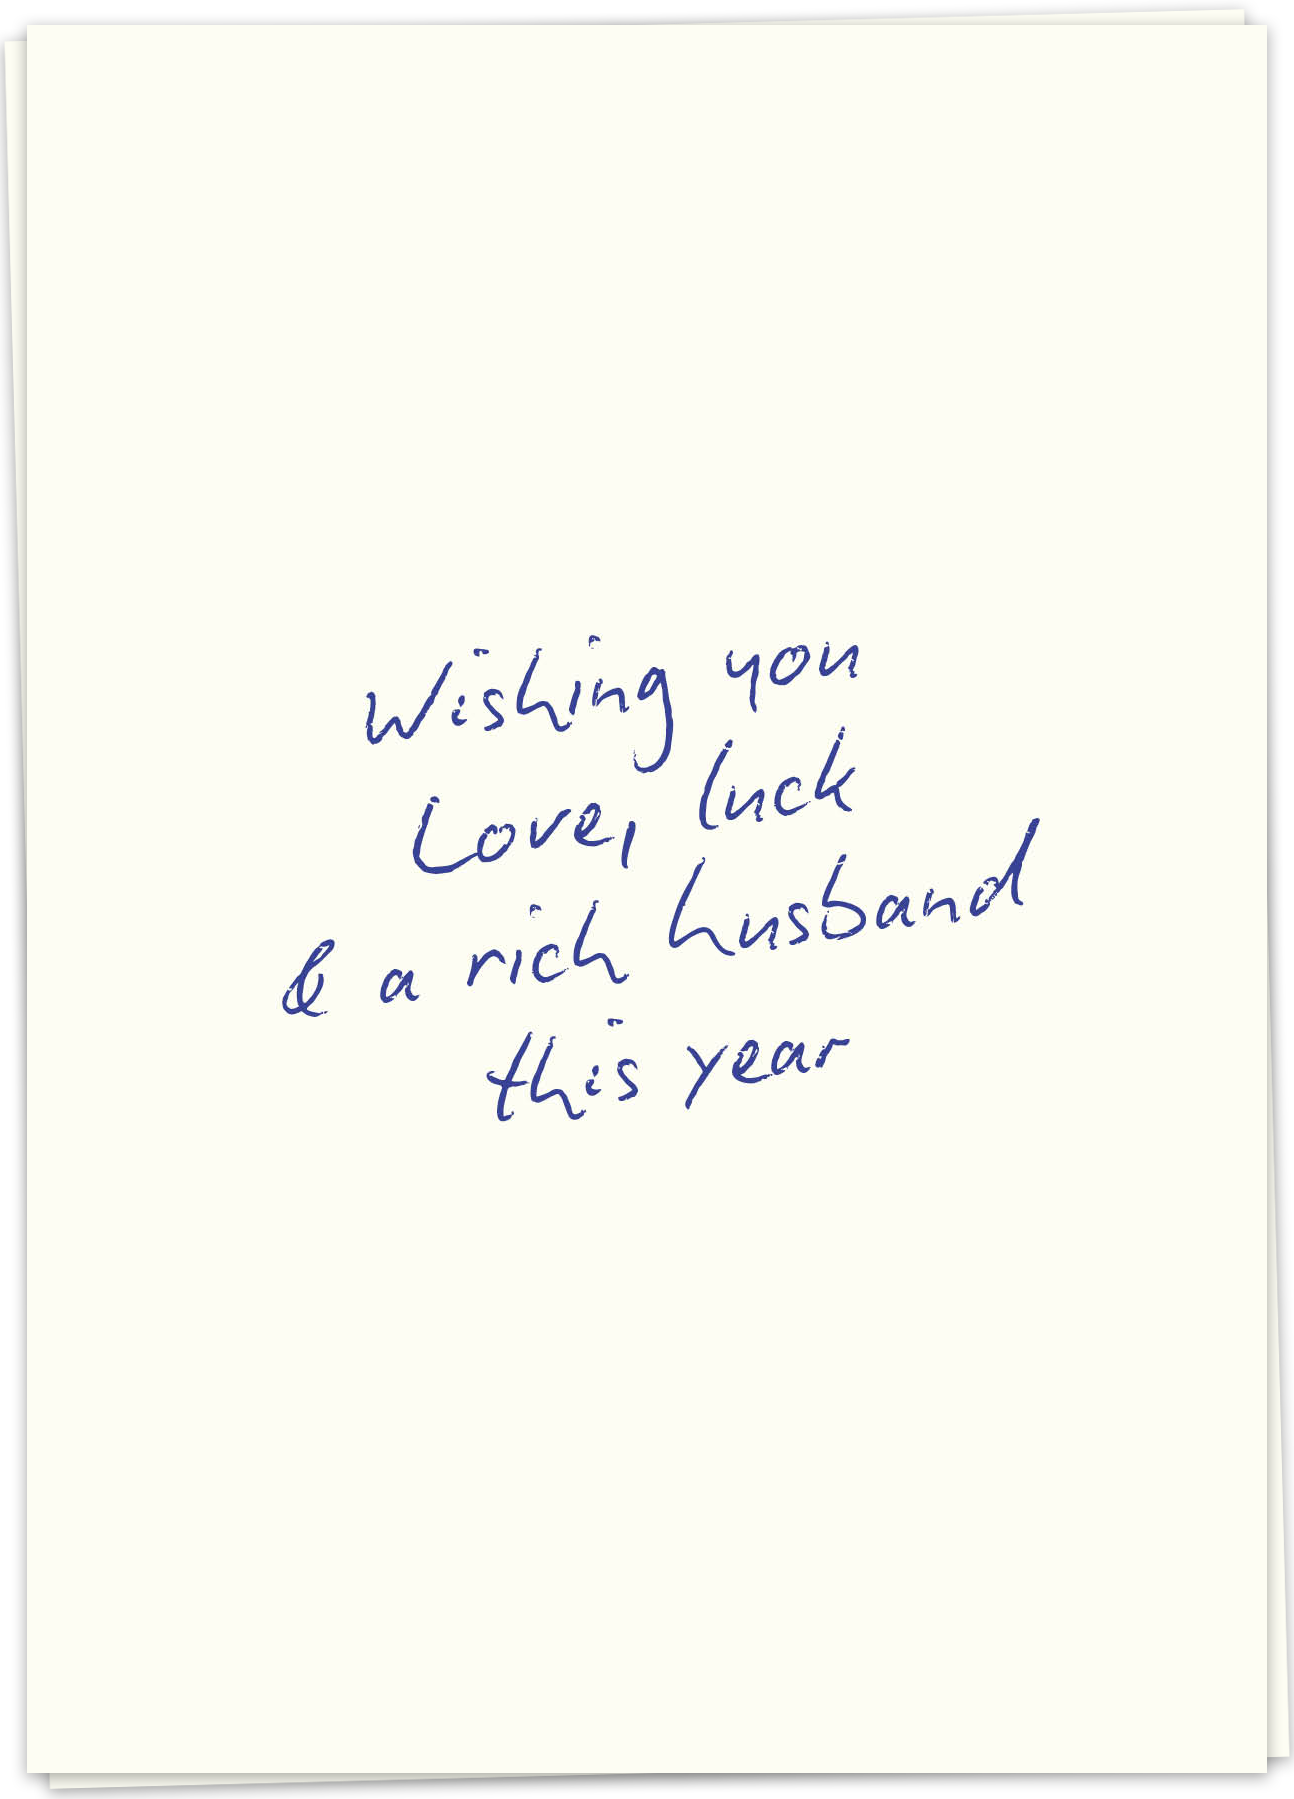 Wishing you
Love, luck
& a rich husband
this year